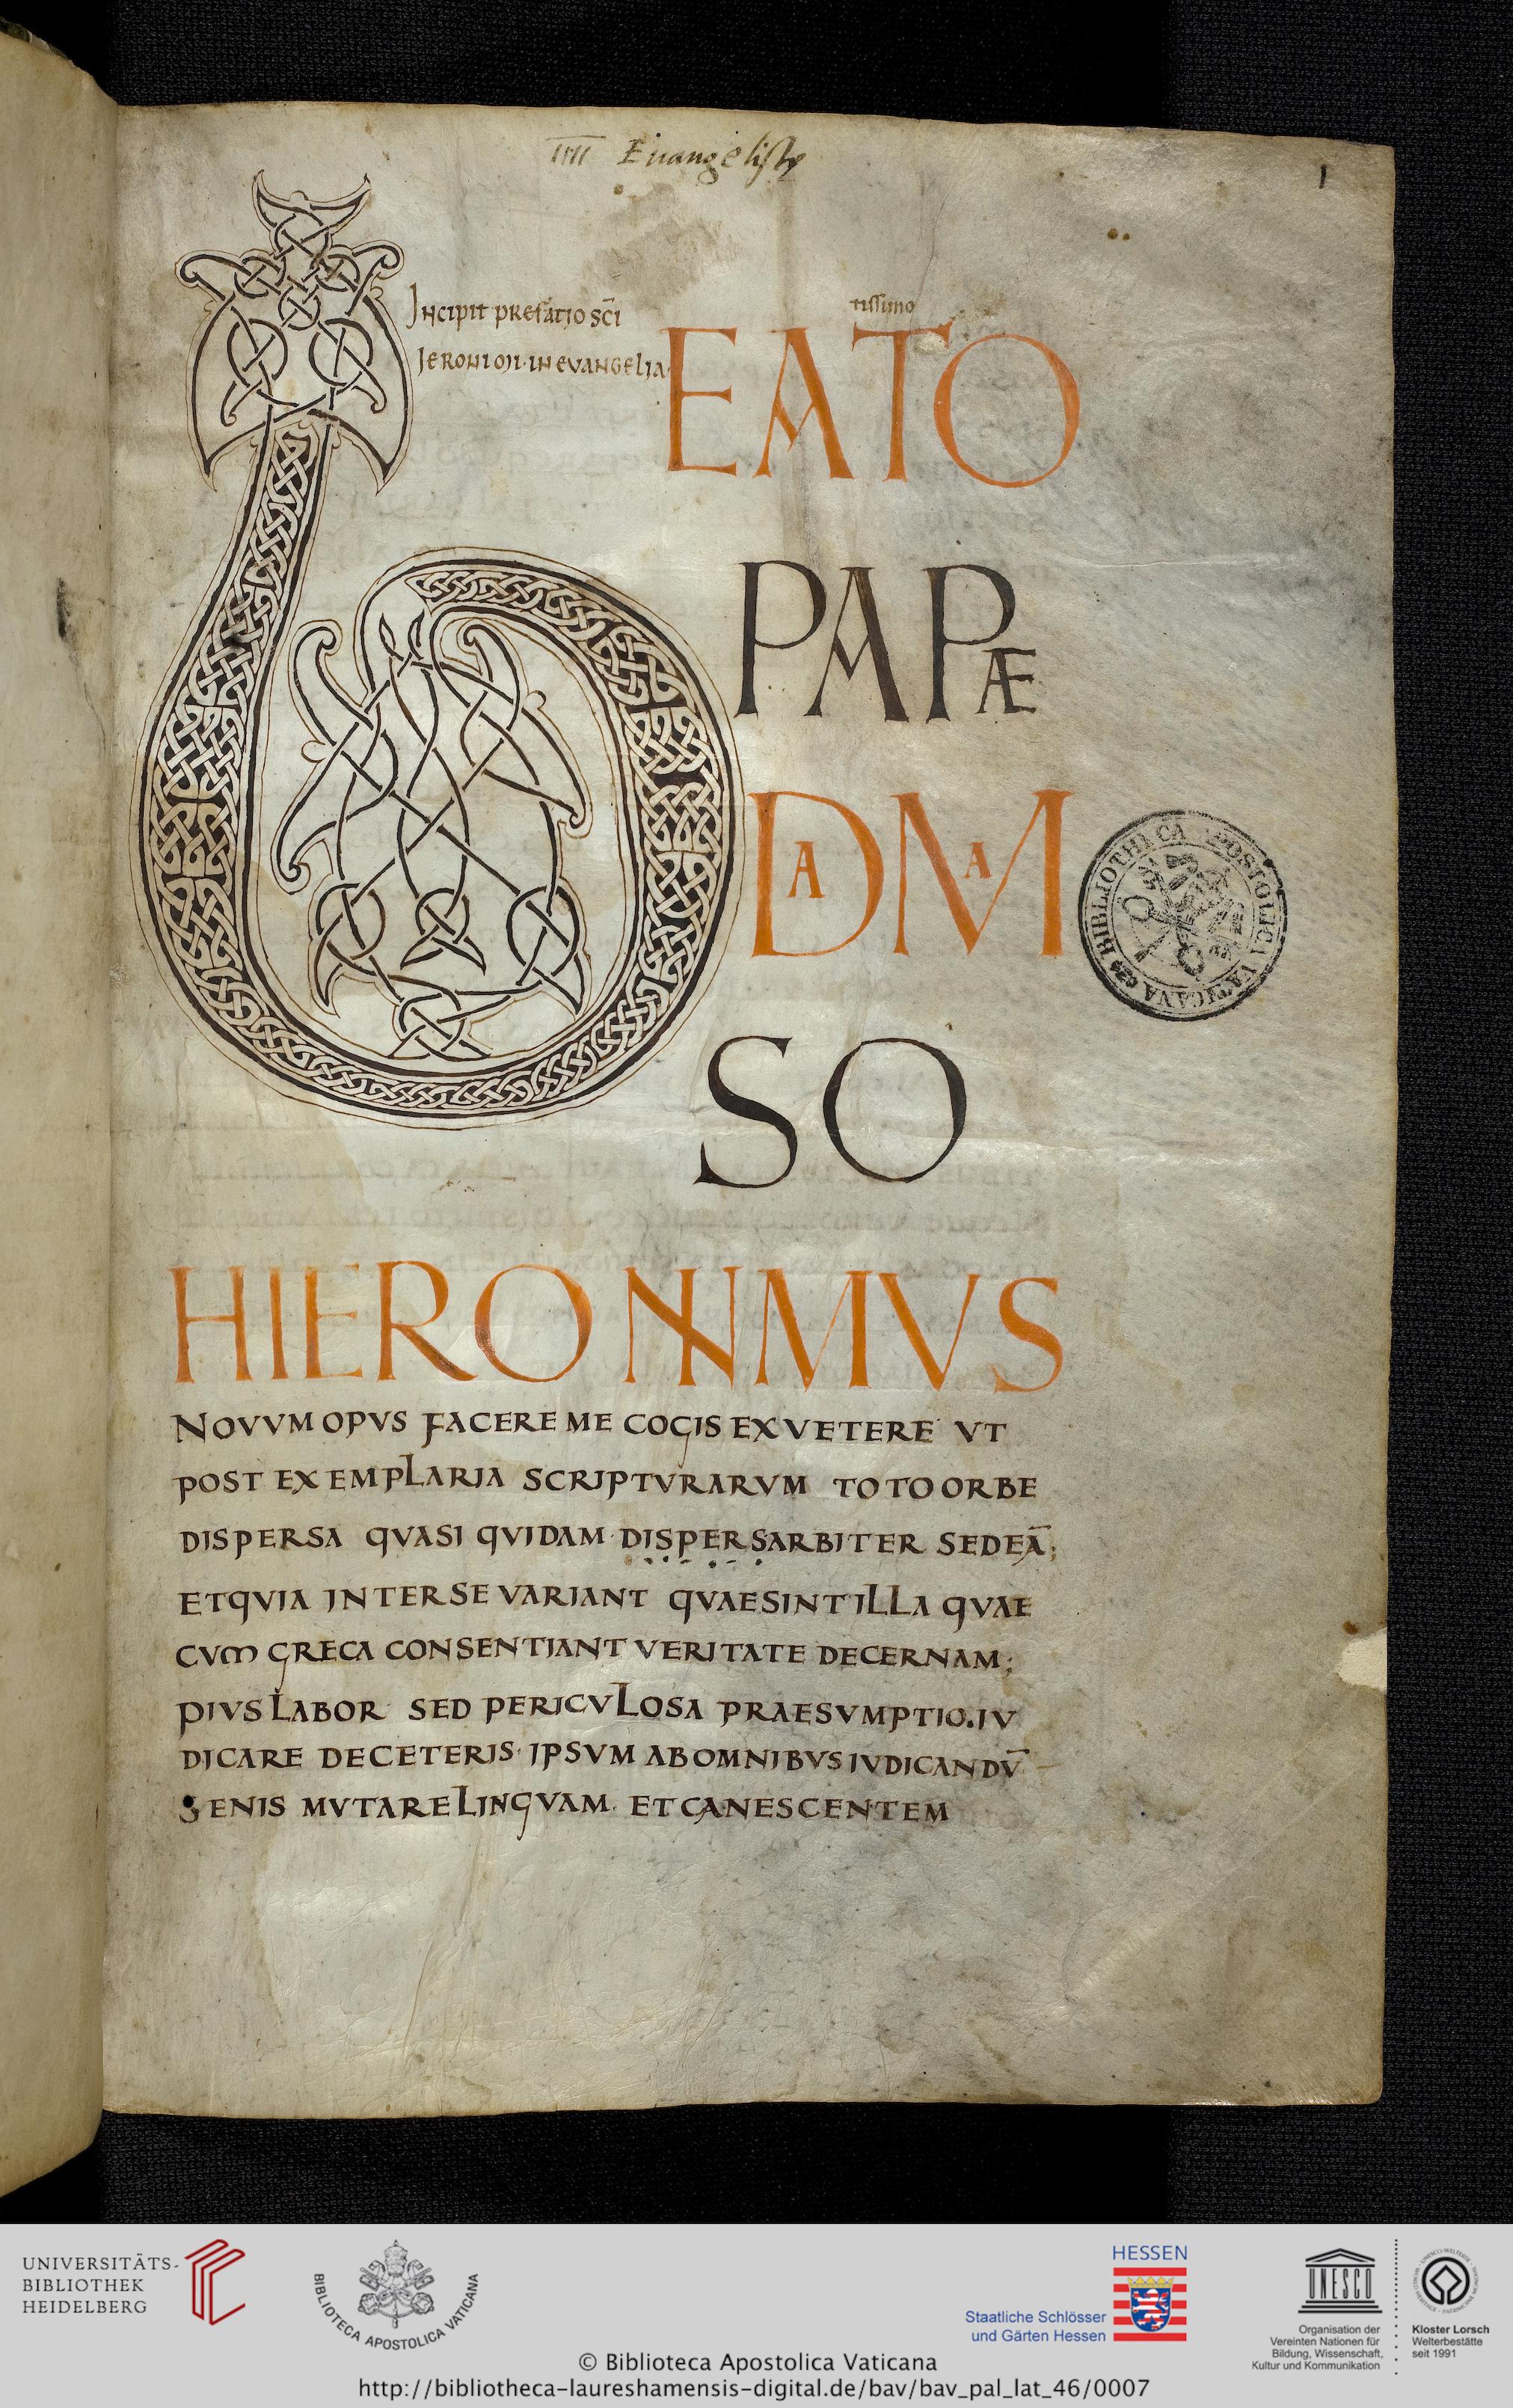 IIII Euangelistę
1
Incipit prefatio sc̄i
Ieronimi · in evangelia·
tissimo
BEATO
PAPÆ
DAMA
SO
HIERONIMVS
NOVVM OPVS FACERE ME COGIS EX VETERE· VT
POST EXEMPLARIA SCRIPTVRARVM TOTO ORBE
DISPERSA QVASI QVIDAM· DISPERSARBITER SEDEĀ;
ET QVIA INTER SE VARIANT QVAE SINT ILLA QVAE
CVM GRECA CONSENTIANT VERITATE DECERNAM;
PIVS LABOR· SED PERICVLOSA PRAESVMPTIO. IV
DICARE DE CETERIS· IPSVM AB OMNIBVS IVDICANDV̄
SENIS MVTARE LINGVAM· ET CANESCENTEM
BIBLIOTHECA APOSTOLICA VATICANA
UNIVERSITÄTS-
BIBLIOTHEK
HEIDELBERG
BIBLIOTECA APOSTOLICA VATICANA
HESSEN
Staatliche Schlösser
und Gärten Hessen
UNESCO
Organisation der
Vereinten Nationen für
Bildung, Wissenschaft,
Kultur und Kommunikation
Kloster Lorsch
Welterbestätte
seit 1991
© Biblioteca Apostolica Vaticana
http://bibliotheca-laureshamensis-digital.de/bav/bav_pal_lat_46/0007